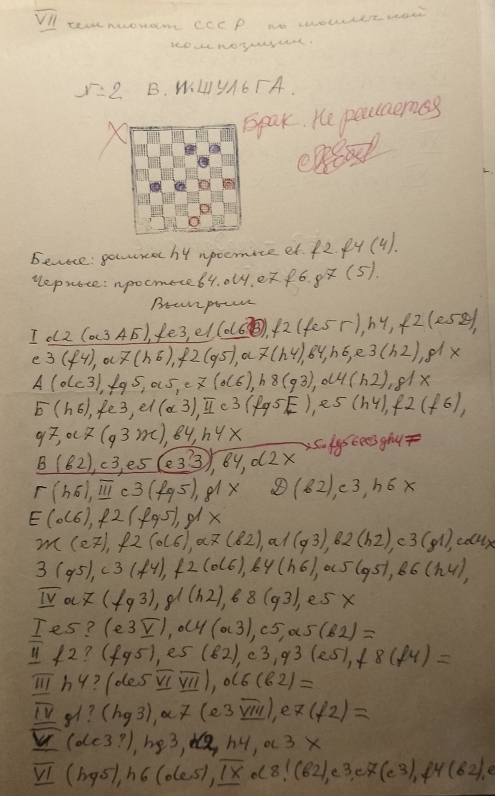 VII чемпионат СССР по шашечной
композиции.
№2 В. ШУЛЬГА.
Брак. Не решается
Белые: дамка h4 простые e1. f2. f4 (4).
Черные: простые b4. d4. e7 f6. g7 (5).
Выигрыш
I d2 (a3 АБ), fe3, e1 (d6 В), f2 (fe5 Г), h4, f2 (e5 Д),
c3 (f4), a7 (h6), f2 (g5), a7 (h4), b4, h6, e3 (h2), g1 x
А (dc3), fg5, a5, c7 (d6), h8 (g3), d4 (h2), g1 x
Б (h6), fe3, e1 (a3), II c3 (fg5 Е), e5 (h4), f2 (f6),
g7, a7 (g3 Ж), b4, h4 x
В (b2), c3, e5 (e3? З), b4, d2 x
Г (h6), III c3 (fg5), g1 x Д (b2), c3, h6 x
Е (d6), f2 (fg5), g1 x
Ж (e7), f2 (d6), a7 (b2), a1 (g3), b2 (h2), c3 (g1), cd4 x
З (g5), c3 (f4), f2 (d6), b4 (h6), a5 (g5), b6 (h4),
IV a7 (fg3), g1 (h2), b8 (g3), e5 x
I e5? (e3 V), d4 (a3), c5, a5 (b2) =
II f2? (fg5), e5 (b2), c3, g3 (e5), f8 (f4) =
III h4? (de5 VI VII), d6 (b2) =
IV g1? (hg3), a7 (e3 VIII), e7 (f2) =
(dc3?), hg3, h4, a3 x
VI (hg5), h6 (de5), IX d8! (b2), c3, c7 (e3), f4 (b2),